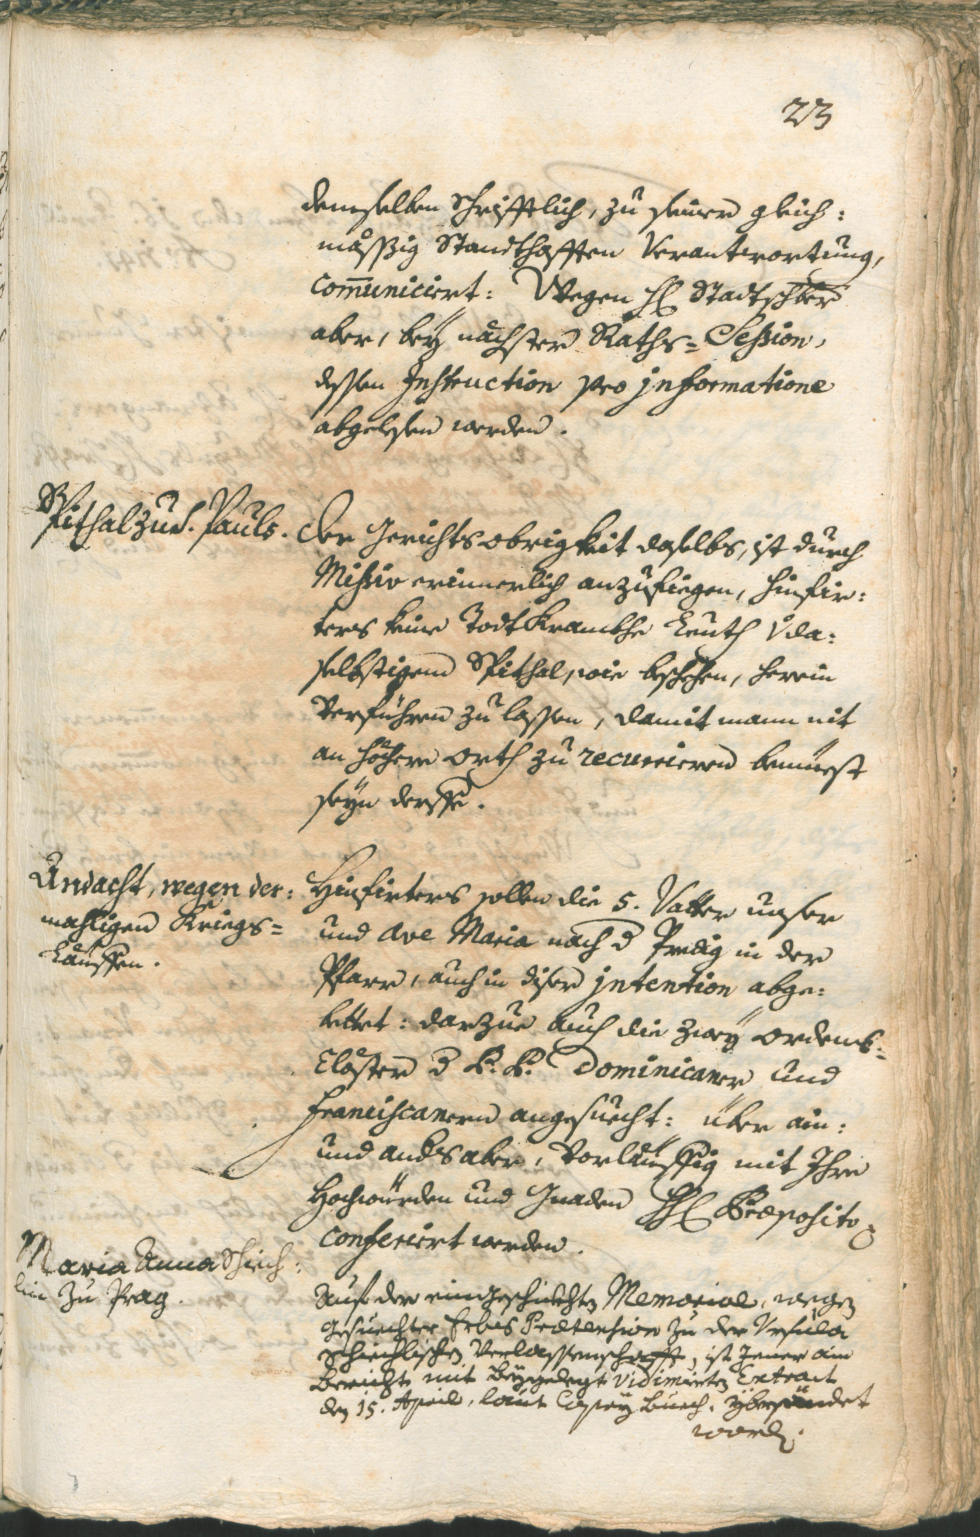 23
demselben Schrifftlich, zu seiner gleich:
mässig Standthafften Verantwortung,
com̄uniciert: Wegen H. Stadtschreiber
aber, bey nächster Raths= Session,
dessen Instruction pro informatione
abgelesen werden.
Spithal zu S. Pauls.
Der Gerichtsobrigkeit daselbs, ist durch
Missiv erinnerlich anzufiegen, hinfir:
ters keine Todt Krankhe Leuth v. da:
selbstigem Spithal, wie beschehen, herein
verführen zu lassen, damit mann nit
an höhere Orth zu recurrieren bemüest
seyn derffe.
Andacht, wegen der:
mahligen Kriegs=
Läuffen.
Hinfirters sollen die 5. Vatter unser
und Ave Maria nach d Predig in der
Pfarr, auch in diser intention abge:
bettet: darzue auch die zwey Ordens:
Clöster d P. P. Dominicaner und
Franciscanern angesuecht: über ain:
und anders aber, vorläuffig mit Ihro
Hochwürden und Gnaden H. Præposito
conferiert werden.
Maria Anna Schiech:
lin zu Prag.
Auf der eingeschickten Memorial, wegen
gesuechter Erbs Prætension zu der Ursula
Schiechlischen Verlassenschafft, ist Jener ain
Bericht mit beygelegt vidimierten Extract
den 15. April, laut Copey Buech, yberséndet
worden.